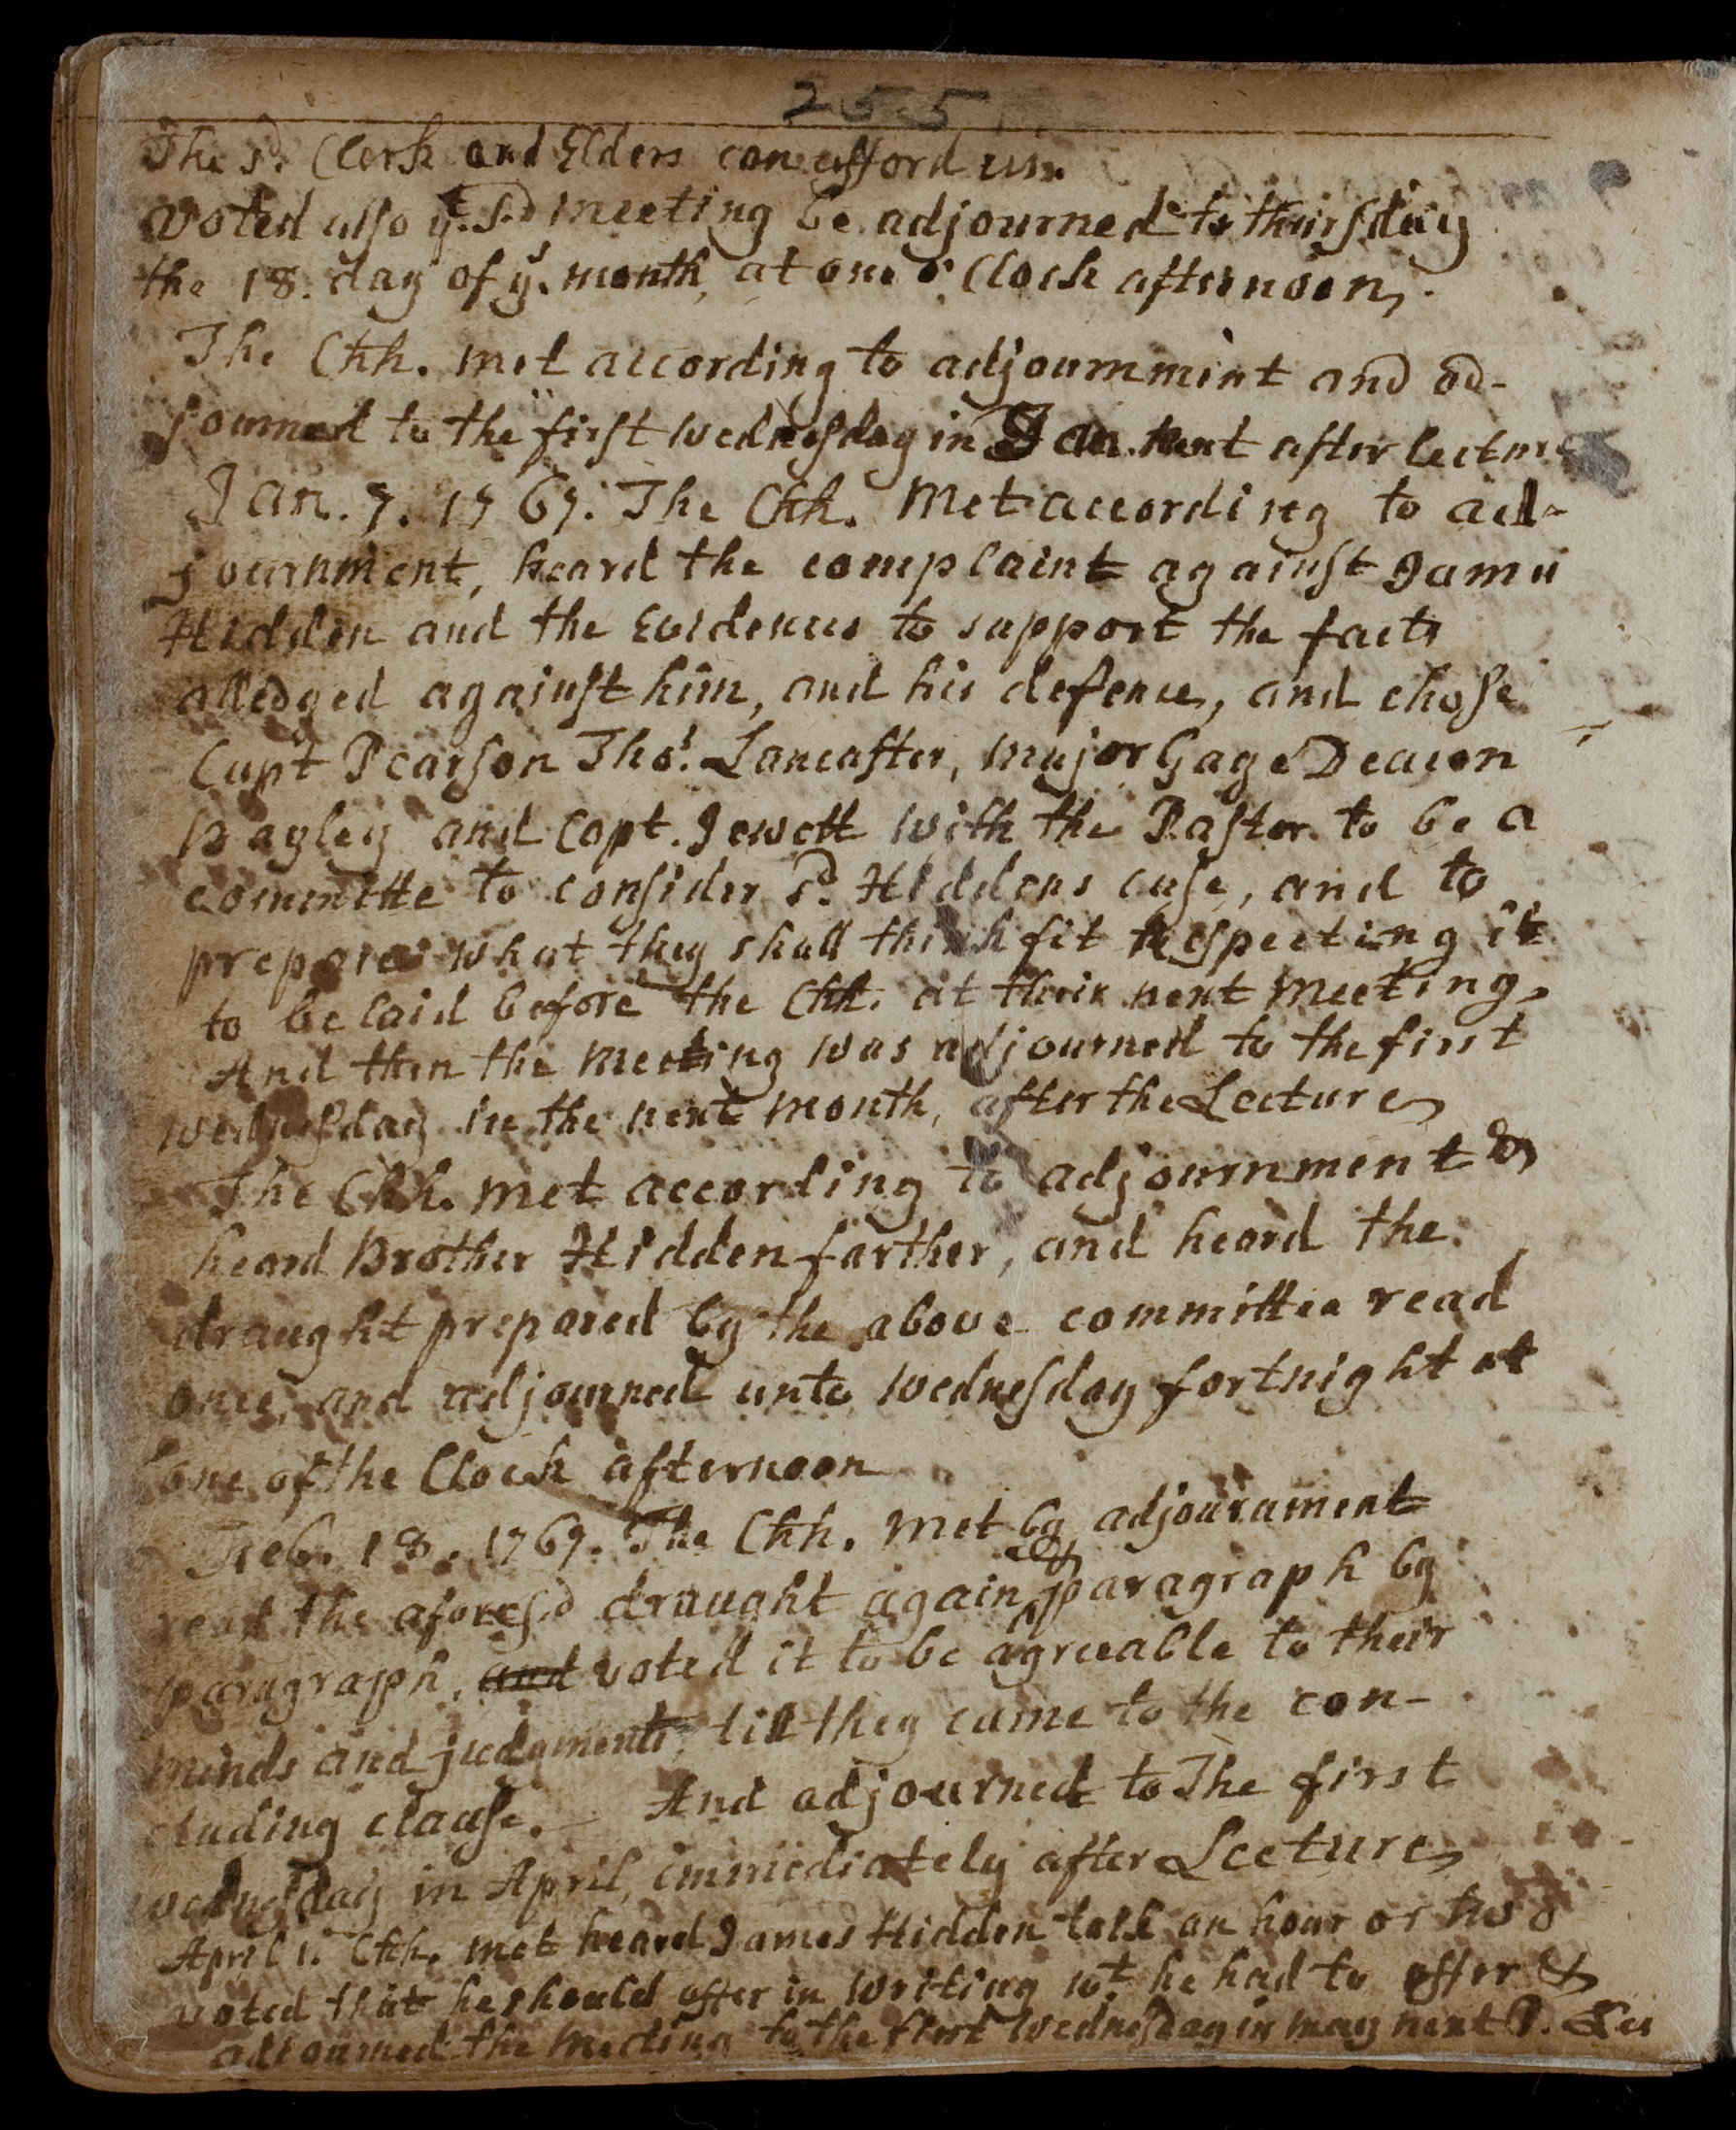 255
The sd. Clerk and Elders can afford us.
Voted also yt. sd meeting be adjourned to thursday
the 18. day of ys. month, at one o' Clock afternoon.
The Chh. met according to adjournment and ad-
journed to the first wednesday in Jan. next after lecture
Jan. 7. 1767. The Chh. Met according to ad-
journment, heard the complaint against James
Hidden and the Evidences to support the facts
alledged against him, and his defence, and chose
Capt Pearson Thos. Lancaster, major Gage Deacon
Bayley and Capt. Jewett with the Pastor to be a
committe to consider sd. Hiddens case, and to
prepare what they shall think fit respecting it
to be laid before the Chh. at their next meeting,
And then the meeting was adjourned to the first
wednesday in the next month, after the Lecture
The Chh. met according to adjournment &
heard Brother Hidden farther, and heard the
draught prepared by the above committee read
once, and adjourned unto wednesday fortnight at
one of the Clock afternoon
Feb. 18. 1767. The Chh. met by adjournment
read the aforesd draught again & paragraph by
paragraph, and voted it to be agreeable to their
minds and judgments, till they came to the con-
cluding clause. — And adjourned to The first
wednesday in April, immediately after Lecture
April 1. Chh. met heard James Hidden talk an hour or two
voted that he should offer in writing wt. he had to offer &
adjourned the meeting to the first Wednesday in may next P. Lec